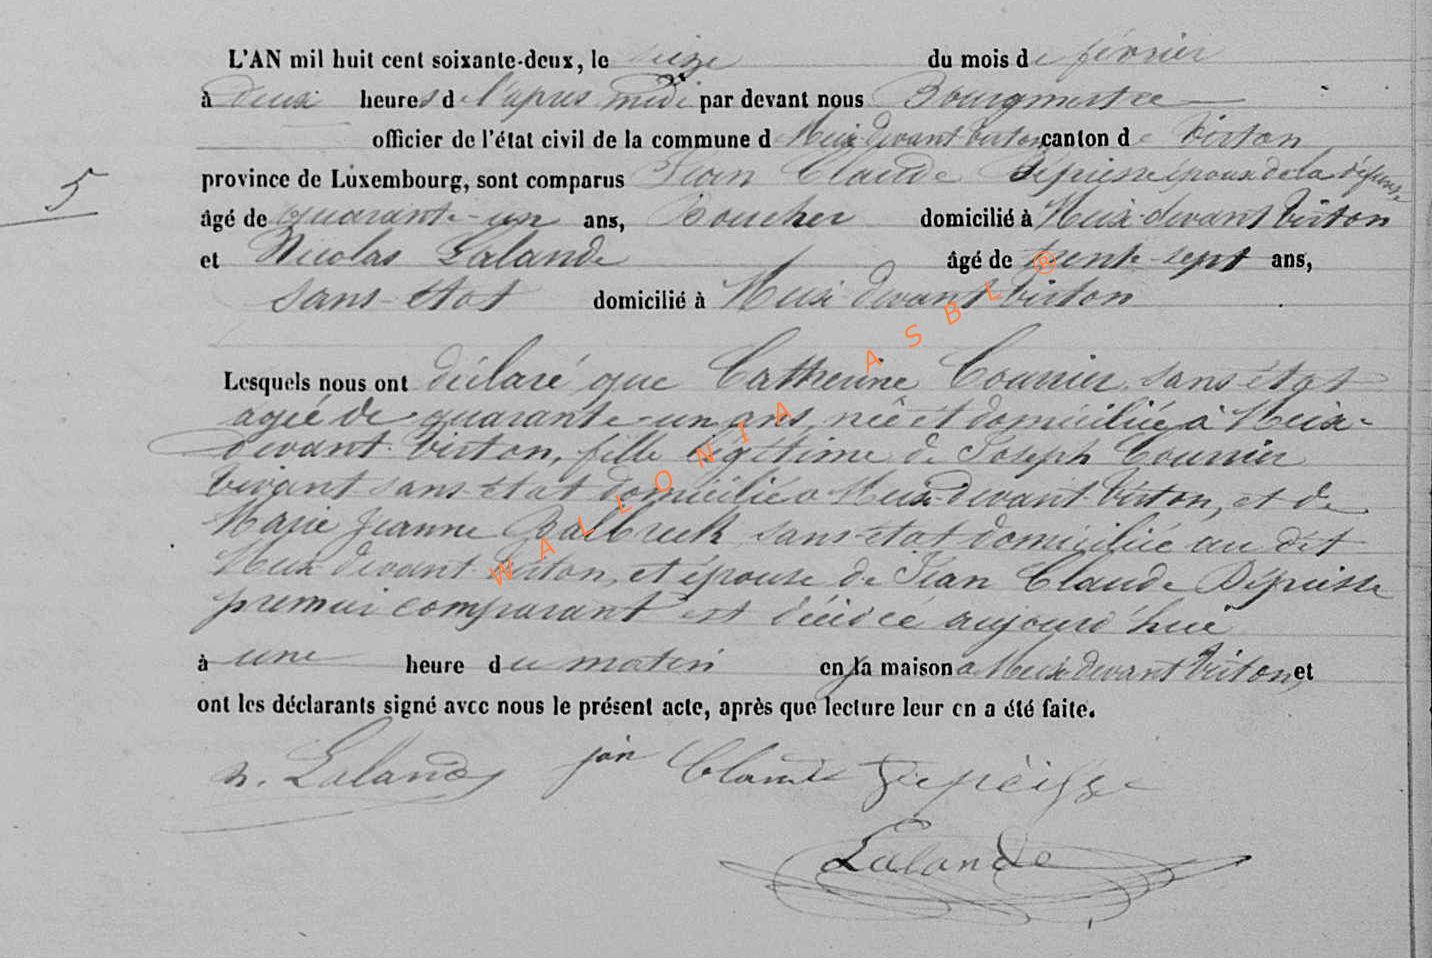 L'AN mil huit cent soixante-deux, le seize du mois de février
à deux heures de l'après midi par devant nous Bourgmestre
officier de l'état civil de la commune d Meix-devant-Virton canton de Virton
5
province de Luxembourg, sont comparus Jean Claude Dépiesse époux de la défunte
âgé de quarante-un ans, Boucher domicilié à Meix-devant Virton
et Nicolas Lalande âgé de trente-sept ans,
sans-état domicilié à Meix devant Virton
Lesquels nous ont déclaré que Catherine Courrier sans état
agée de quarante-un ans, née et domiciliée à Meix-
devant-Virton, fille légitime de Joseph Courrier
vivant sans-état domicilié à Meix-devant-Virton, et de
Marie Jeanne Balbreck sans-état domiciliée au dit
Meix devant Virton, et épouse de Jean Claude Dépiesse
premier comparant est décédée aujourd'hui
à une heure du matin en sa maison à Meix devant Virton, et
ont les déclarants signé avec nous le présent acte, après que lecture leur en a été faite.
n. Lalande jan Claude Depéisse
Lalande
WALLONIA ASBL ®